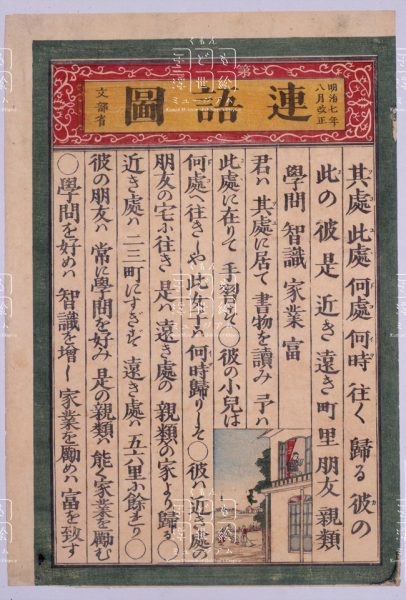 明治七年
八月改正
連語圖
文部省
其處 此處 何處 何時 往く 歸る 彼の
此の 彼 是 近き 遠き 町 里 朋友 親類
學問 智識 家業 富
君ハ 其處に居て 書物を讀み 予ハ
此處に在りて 手習をす〇彼の小兒は
何處へ往きしや此女子ハ何時歸りしぞ〇彼ハ近き處の
朋友の宅に往き 是ハ 遠き處の 親類の家より歸る〇
近き處ハ 二三町にすぎず 遠き處ハ 五六里に餘れり〇
彼の朋友ハ 常に學問を好み 是の親類ハ 能く家業を勵む
〇學問を好めハ 智識を增し 家業を勵めハ 富を致す